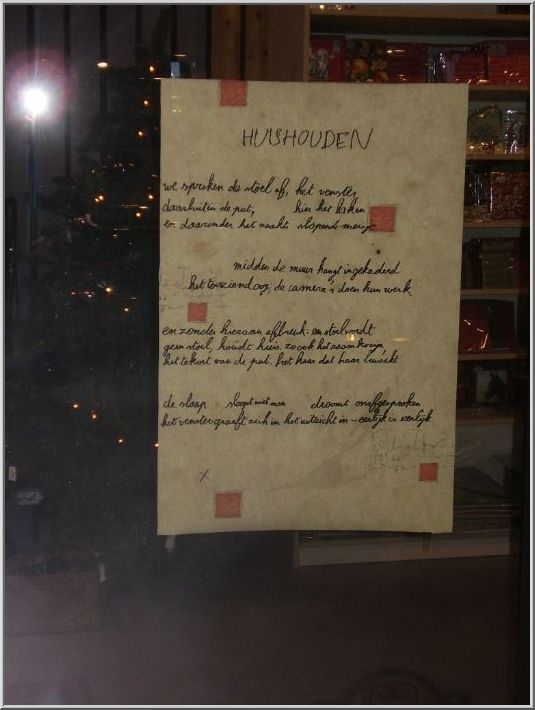 HUISHOUDEN
we spreken de stoel af, het venster,
daarbuiten de put, hier het laken
en daaronder het naakte slapende meisje
midden de muur hangt ingekaderd
het toeziend oog, de camera's doen hun werk
en zonder hieraan afbreuk: een stoel wordt
geen stoel, houdt huis zo ook het raamkozijn
het tekort van de put. het haar dat haar
de slaap slaapt niet meer droomt onafgesproken
het venster graaft zich in het uitzicht in - eerlijk is eerlijk
X